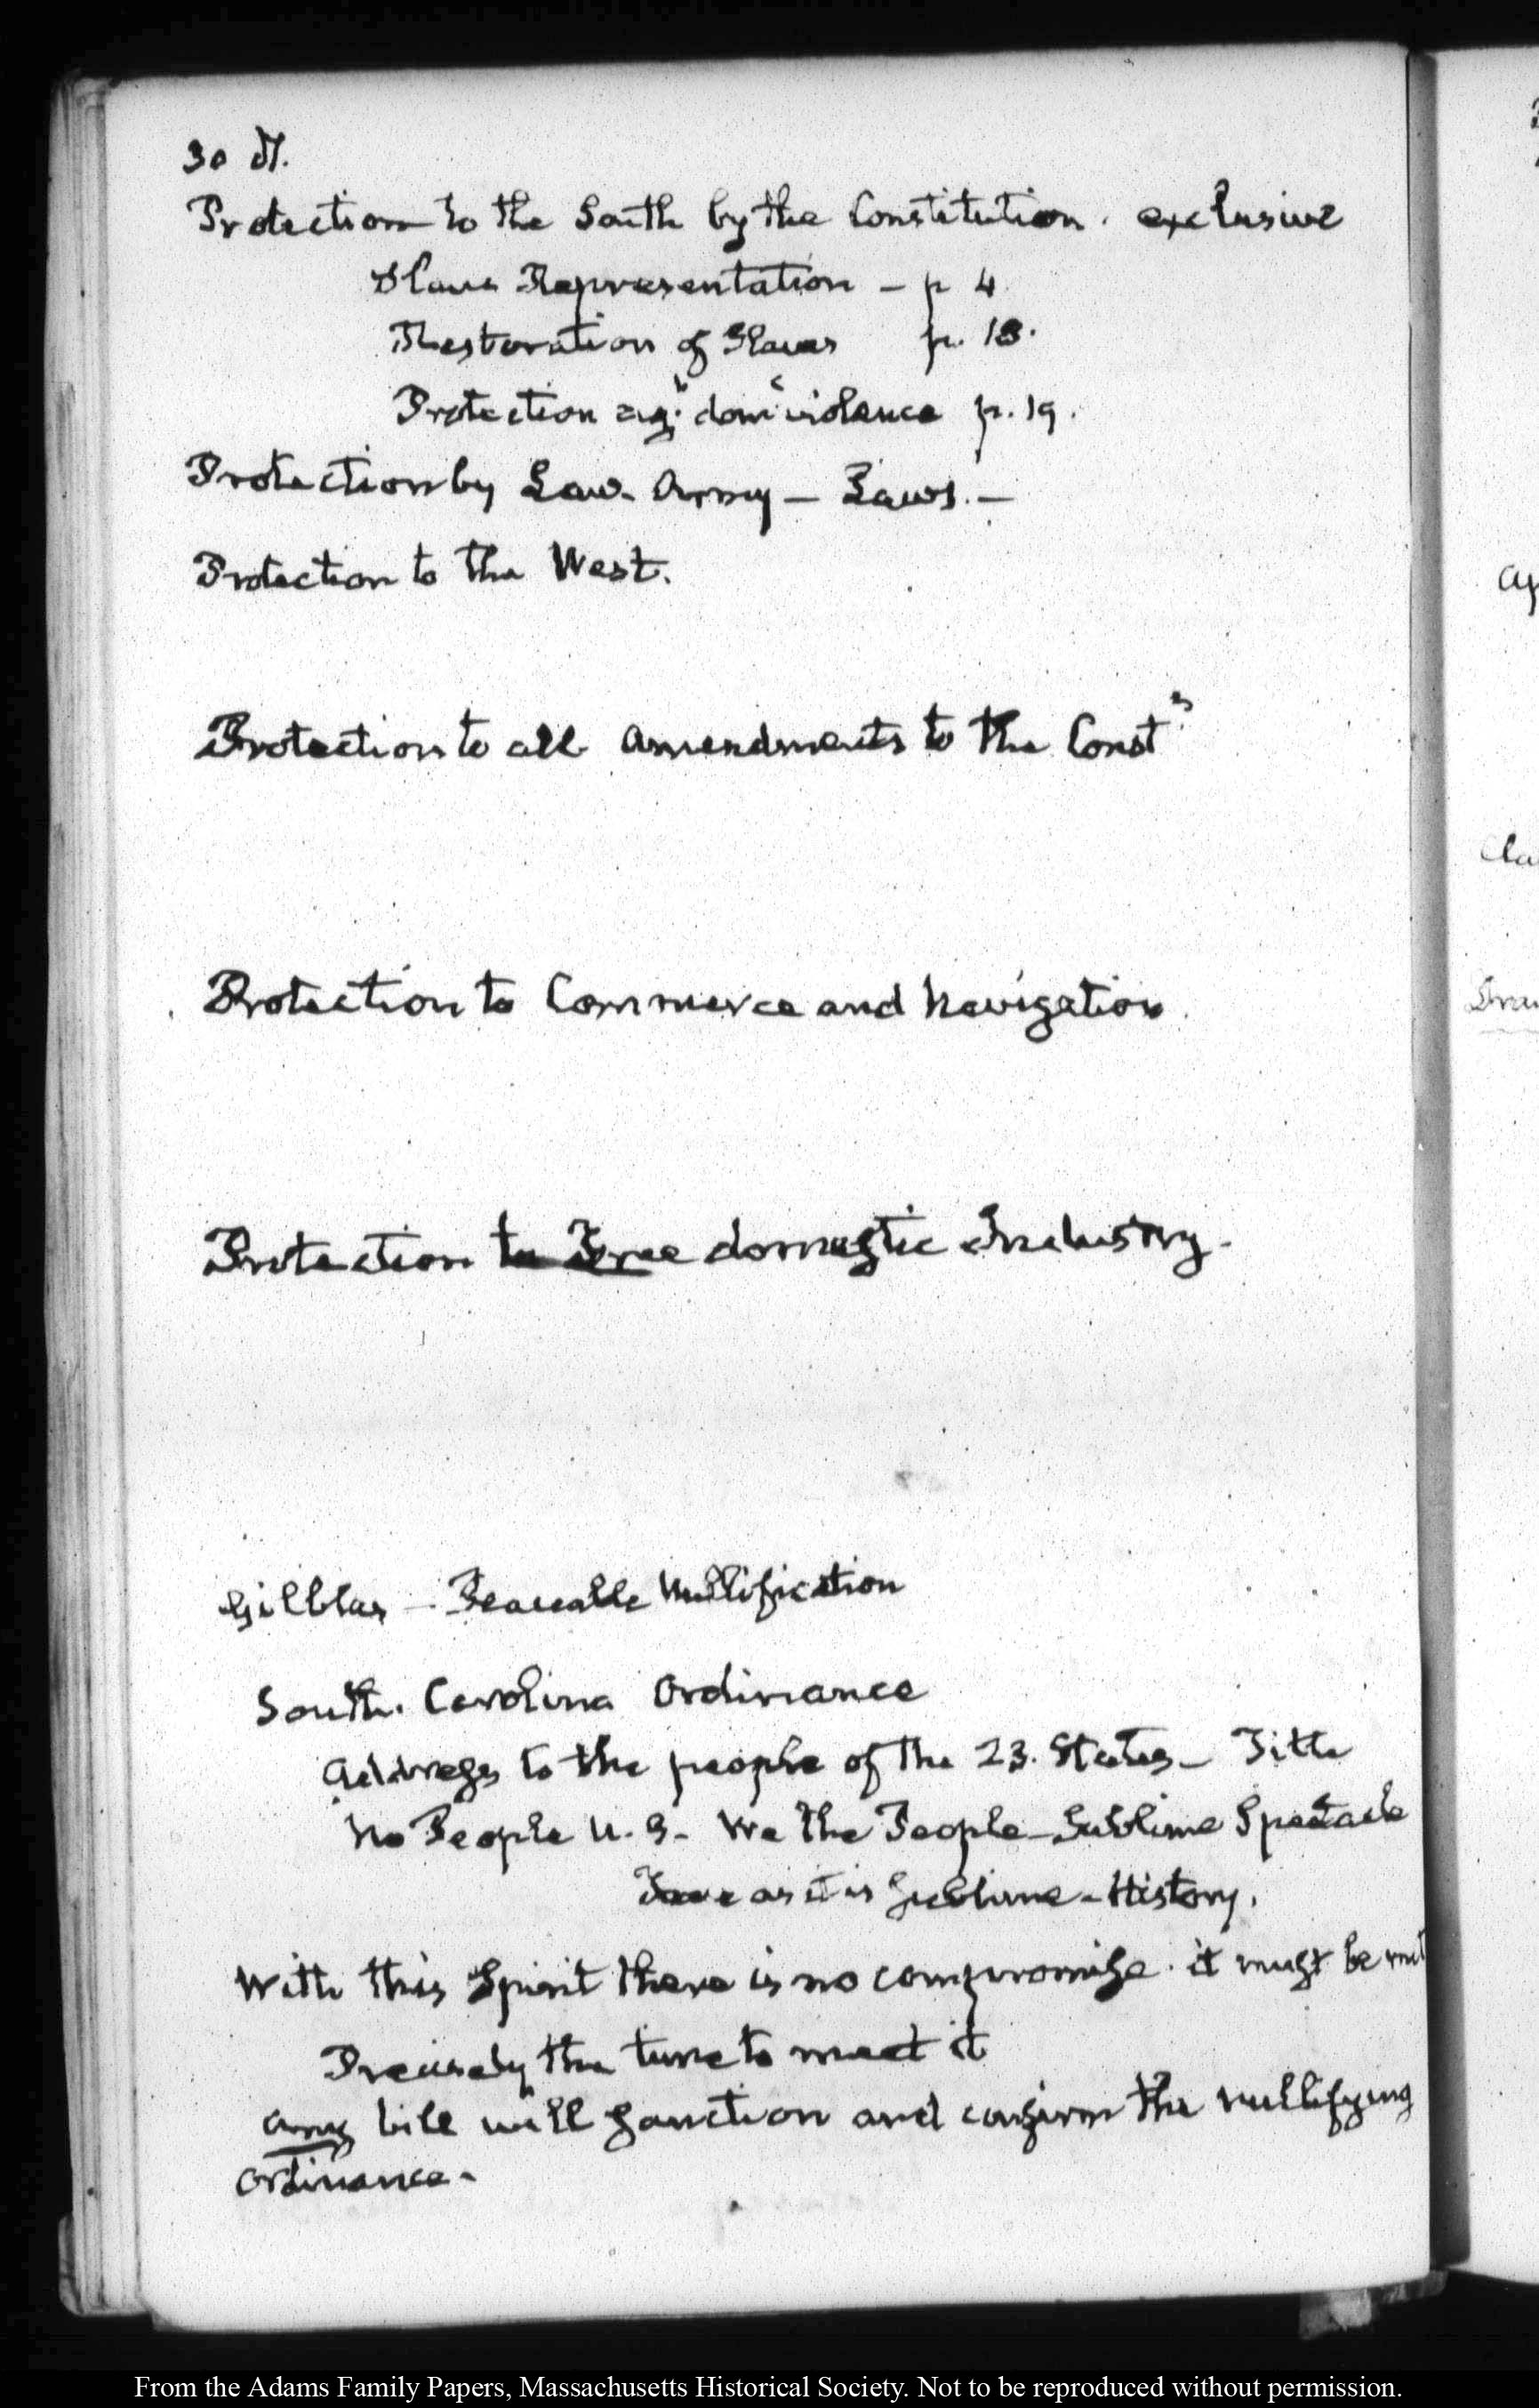 30
Protection to the South by the Constitution. exclusive
Slave Representation – p 4
Restoration of Slaves p. 18.
Protection ag.t dom.c violence p. 19.
Protection by Law. Army – Laws. –
Protection to the West.
Protection to all amendments to the Constn.
Protection to Commerce and Navigation.
Protection to Free domestic Industry.
Gilblas – Peaceable Nullification
South. Carolina Ordinance
Address to the people of the 23. States – Title
No People U.S. We the People – Sublime Spectacle
as it is Sublime – History.
With this Spirit there is no compromise. it must be met
Precisely the time to meet it
any bill will sanction and confirm the nullifying
Ordinance.
ap
Cla
From the Adams Family Papers, Massachusetts Historical Society. Not to be reproduced without permission.